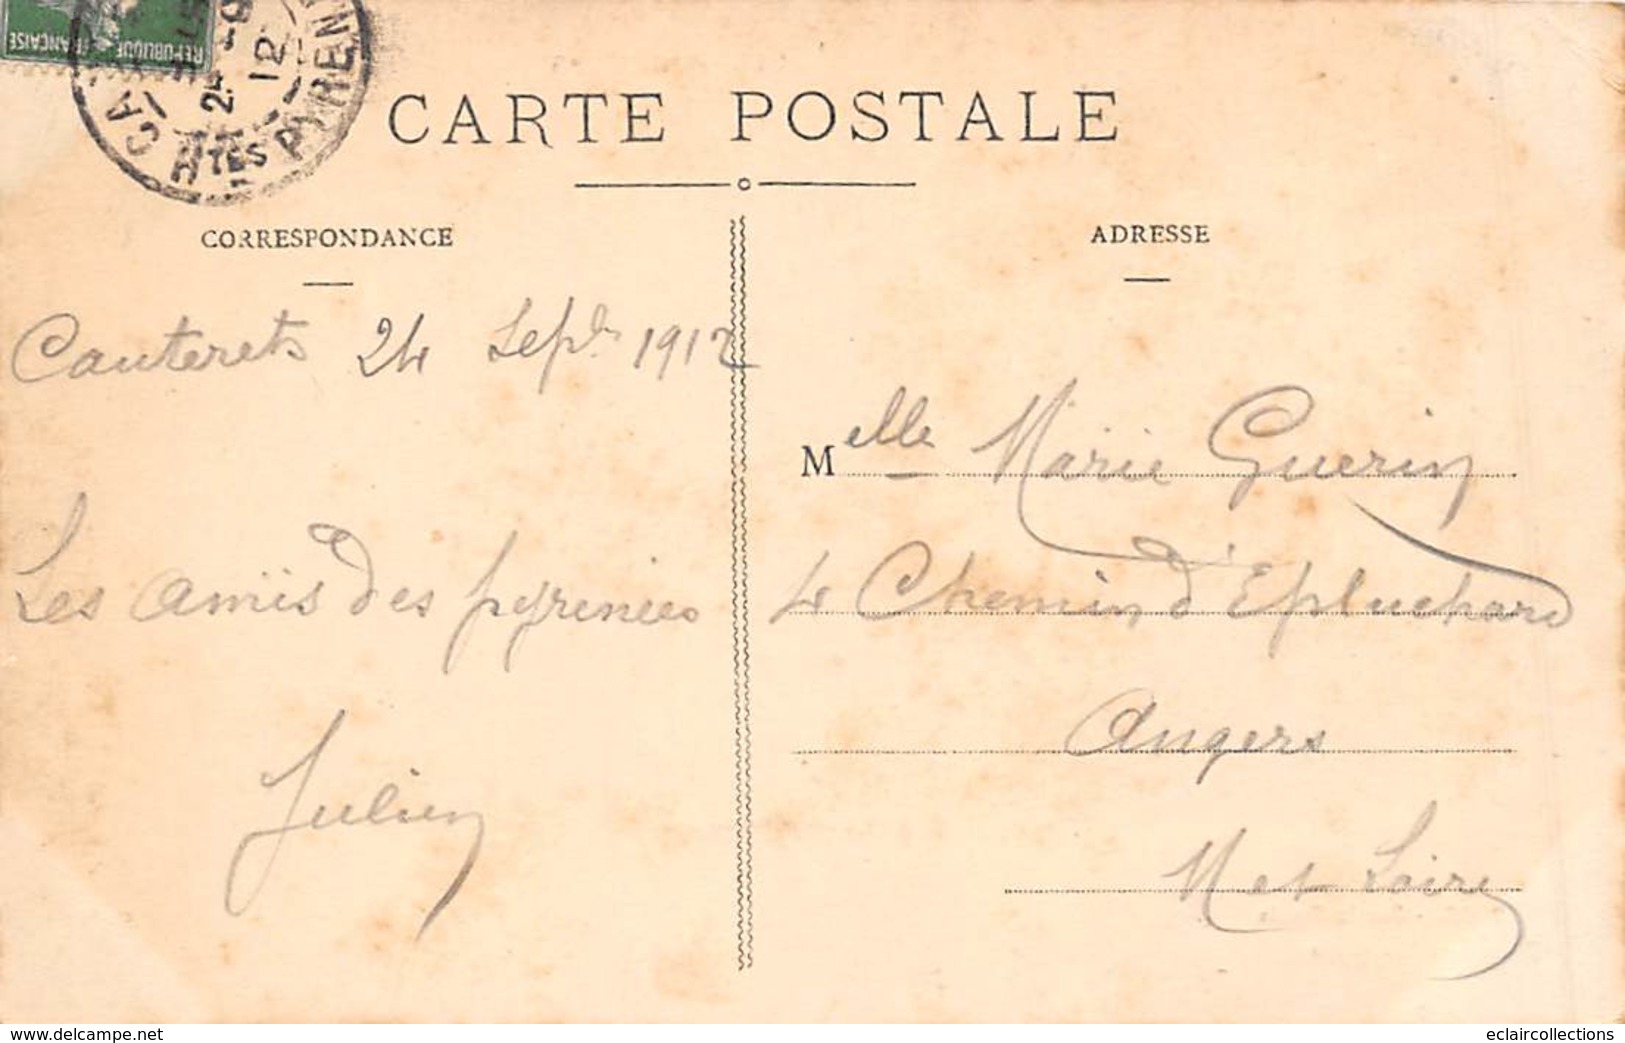 REPUBLIQUE FRANÇAISE
CA
25 -9
12
HTES PYREN
CARTE POSTALE
CORRESPONDANCE
Cauterets 24 Sepbr 1912
Les amis des pyrenées
Julien
ADRESSE
Melle Marie Guerin
4 Chemin d'Epluchard
Angers
M et Loire
www.delcampe.net
eclaircollections